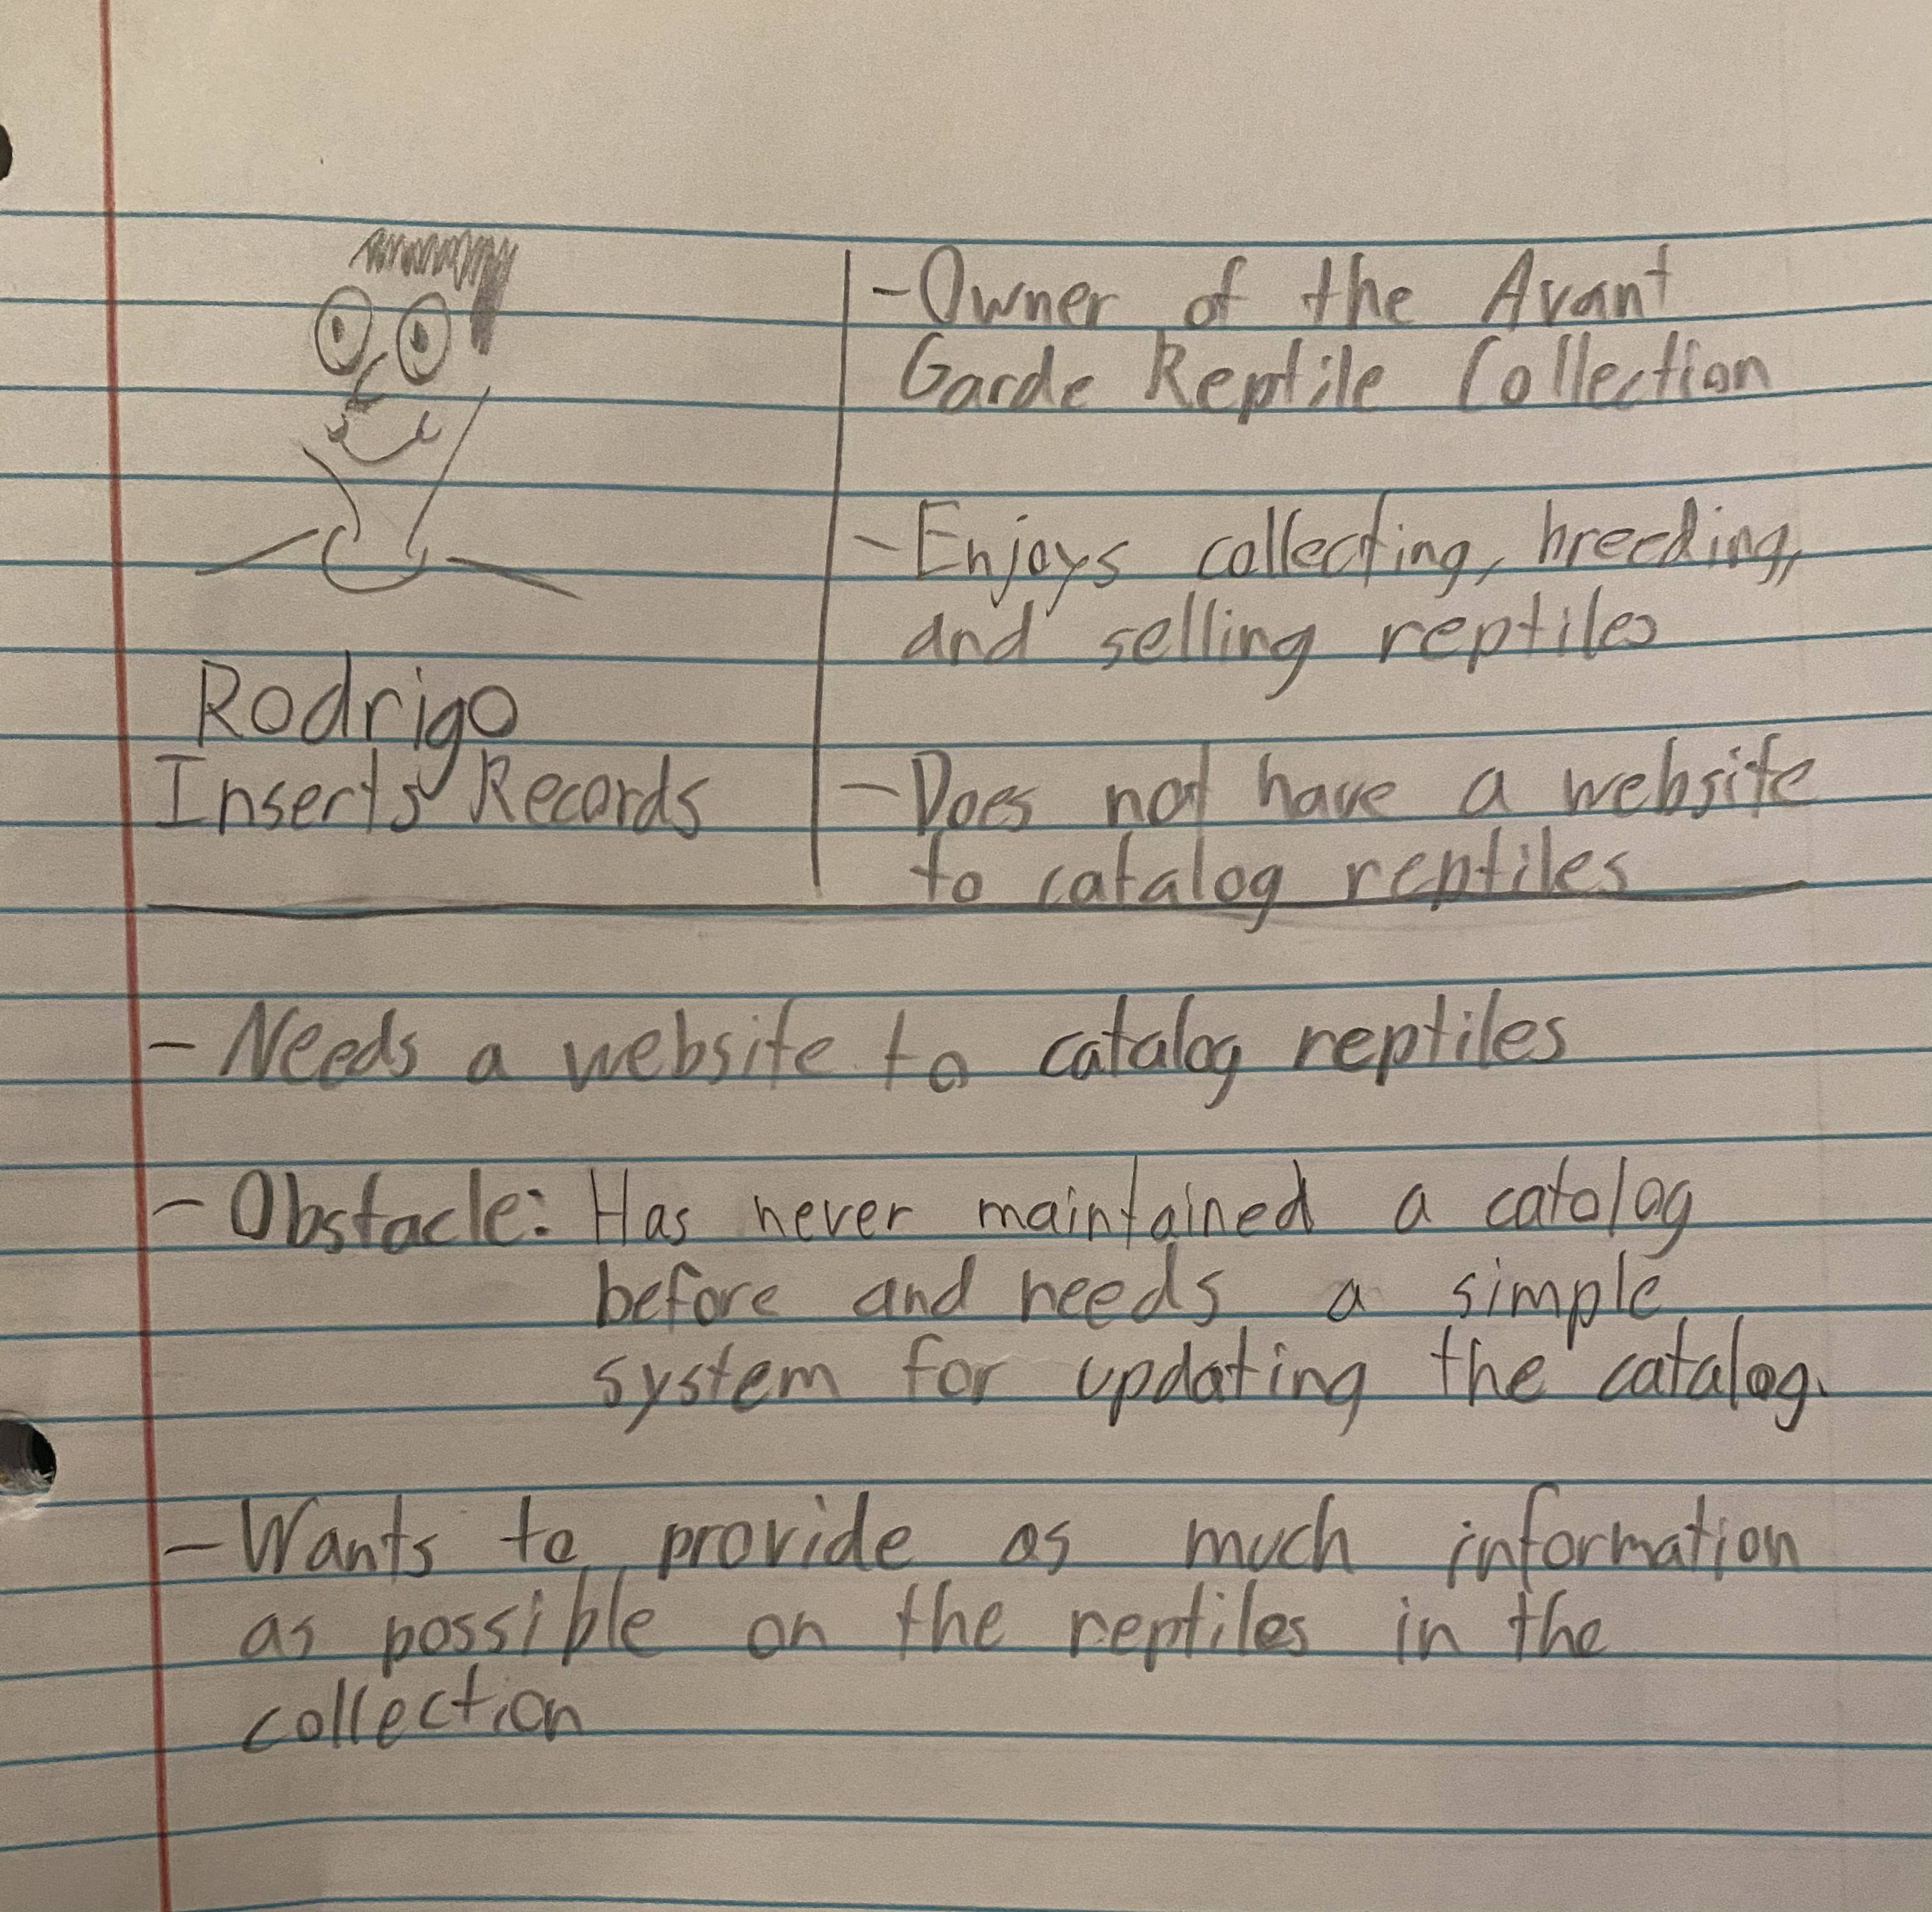 Rodrigo
Inserts Records
- Owner of the Avant
Garde Reptile Collection
- Enjoys collecting, breeding,
and selling reptiles
- Does not have a website
to catalog reptiles
- Needs a website to catalog reptiles
- Obstacle: Has never maintained a catolog
before and needs a simple
system for updating the catalog.
- Wants to provide as much information
as possible on the reptiles in the
collection